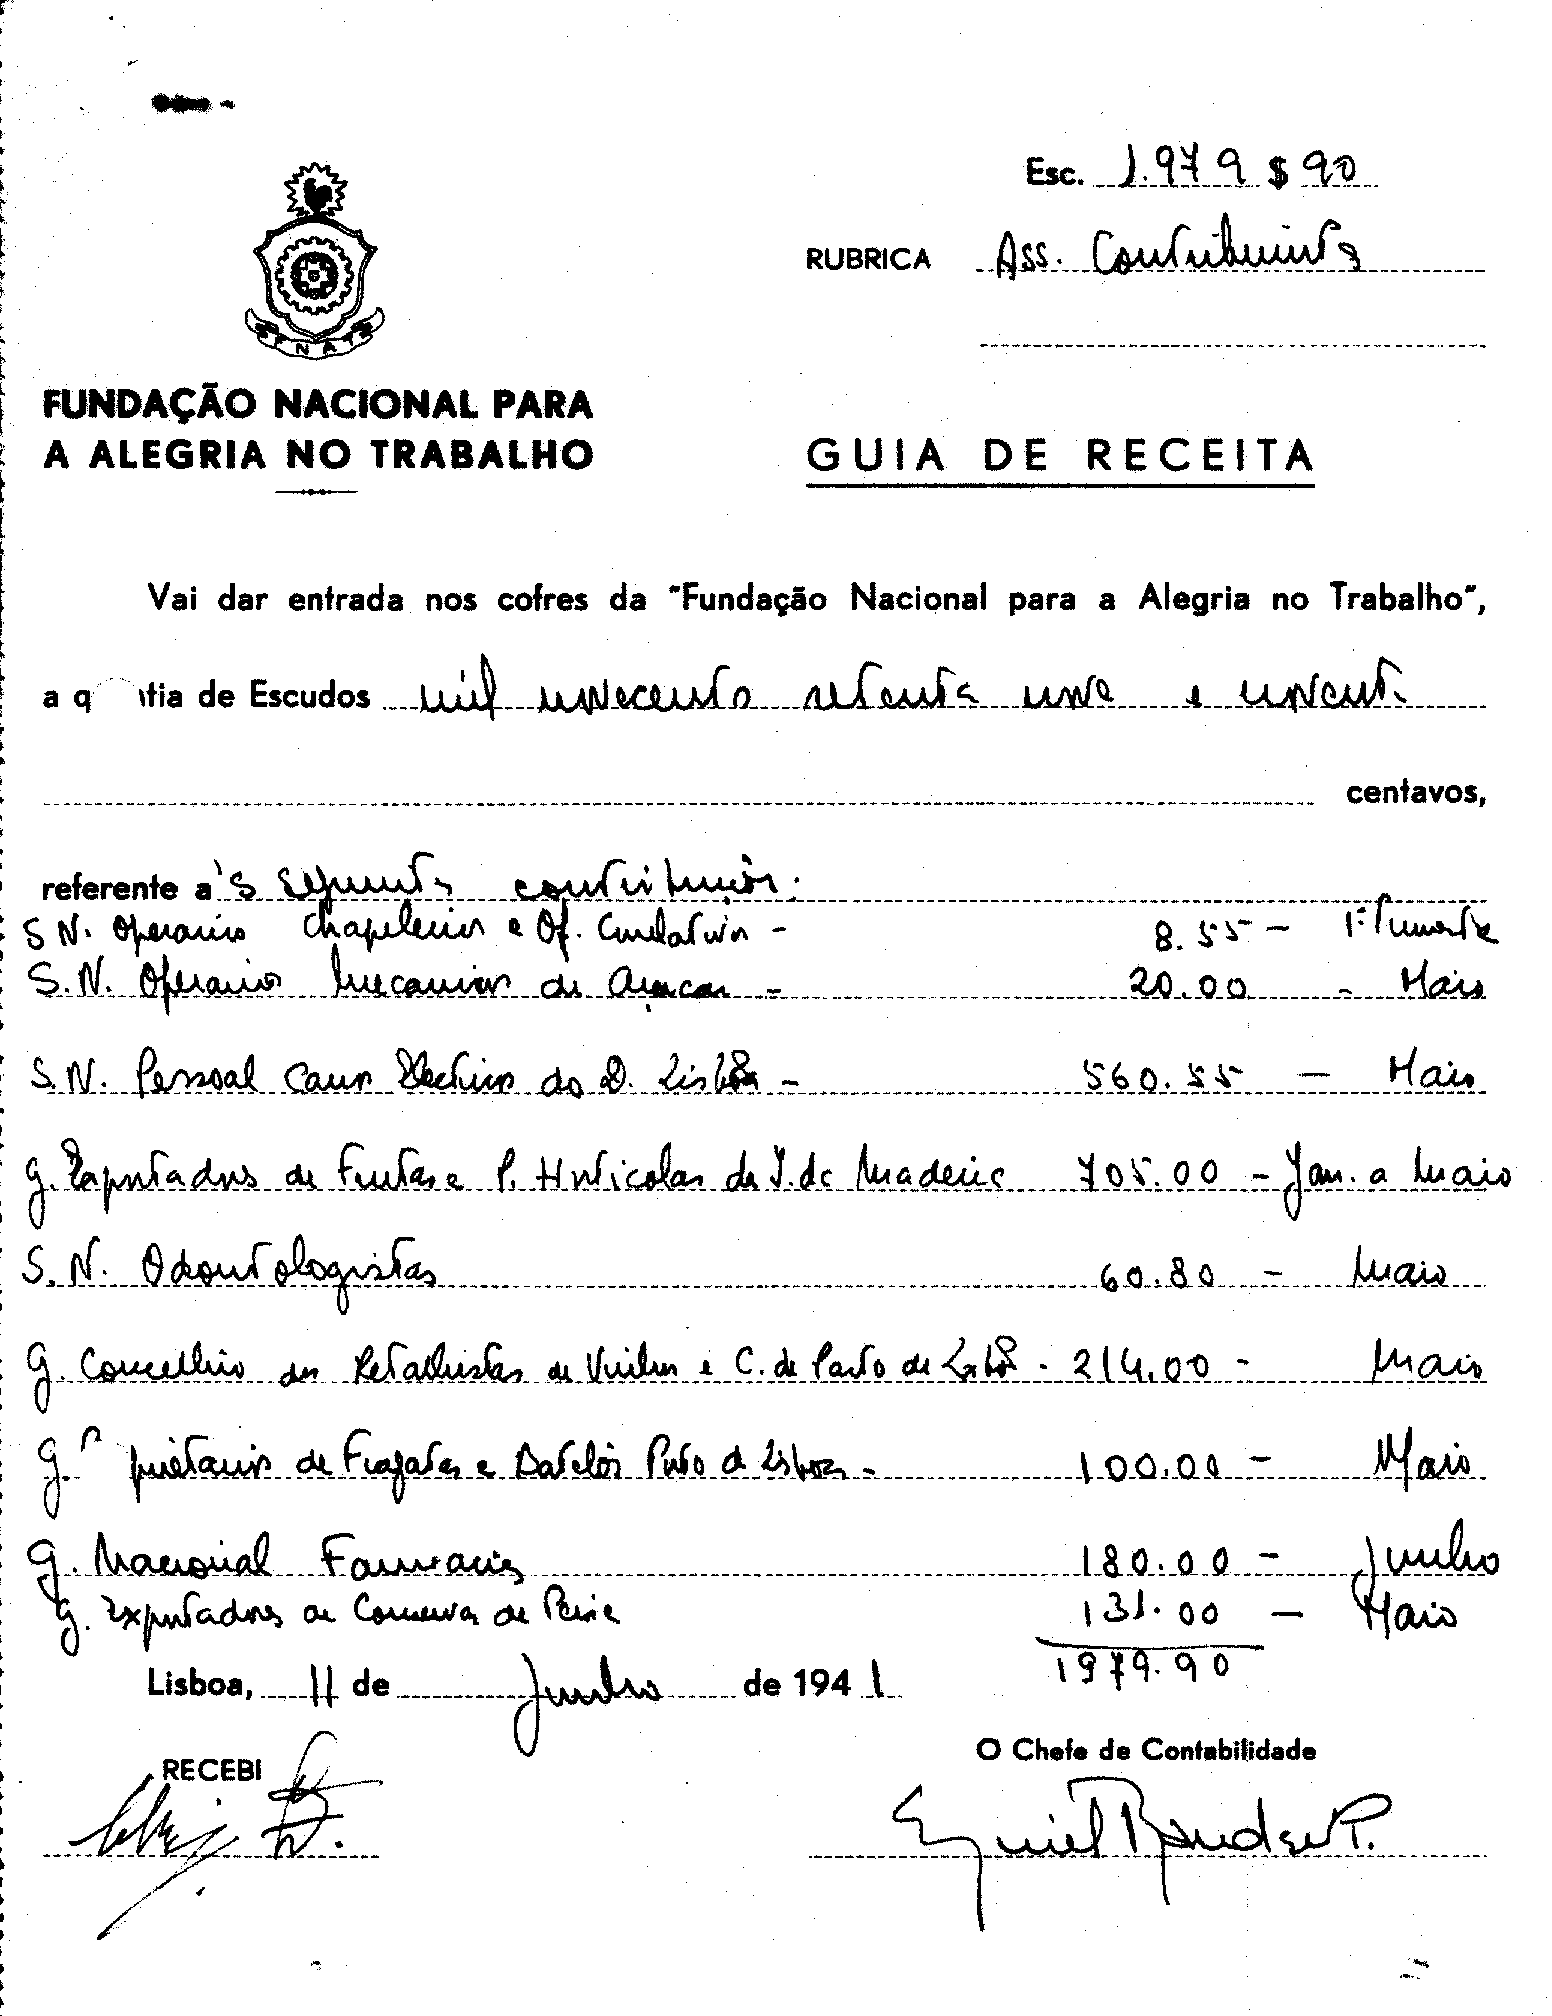 Esc. 1.979 $ 90
RUBRICA Ass. Contribuintes
FNAT
FUNDAÇÃO NACIONAL PARA
A ALEGRIA NO TRABALHO
GUIA DE RECEITA
Vai dar entrada nos cofres da "Fundação Nacional para a Alegria no Trabalho",
a q tia de Escudos mil novecentos setenta nove e novent.
centavos,
referente a's seguintes contribuições:
S N. Operarios Chapeleiros e Of. Correlativos - 8.55 - 1º Trimestre
S. N. Operarios Mecanicos de Açucar - 20.00 - Maio
S. N. Pessoal Carros Electricos do D. Lisboa - 560.55 - Maio
g. Exportadores de Frutas e P. Horticolas da I. da Madeira 705.00 - Jan. a Maio
S. N. Odontologistas 60.80 - Maio
g. Concelhio dos Retalhistas de Vinhos e C. de Pasto de Lxbôa - 214.00 - Maio
g. P prietarios de Fragatas e Batelões Porto d Lisboa - 100.00 - Maio
g. Nacional Farmacias 180.00 - Junho
g. Exportadores de Conservas de Peixe 131.00 - Maio
1979.90
Lisboa, 11 de Junho de 1941
RECEBI
O Chefe de Contabilidade